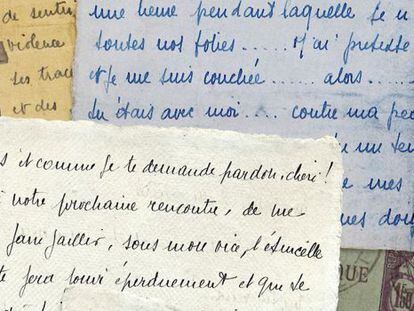 de senti
violence
des trac
et des
une heure pendant laquelle je
toutes nos folies..... J'ai prétexté
et je me suis couchée..... alors.....
tu étais avec moi.... contre ma pea
mes
mes dou
s et comme je te demande pardon, chéri!
notre prochaine rencontre, de me
faire jaillir, sous mon vice, l'étincelle
te fera jouir éperdument et que je
QUE
15